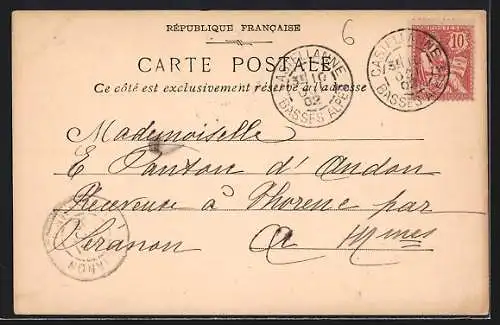 RÉPUBLIQUE FRANÇAISE
6
CARTE POSTALE
Ce côté est exclusivement réservé à l'adresse
CASTELLANNE
BASSES ALPES
CASTELLANNE
BASSES ALPES
10
Mademoiselle
E Panton d'Andon
Receveuse à Thorenc par
Séranon A Mmes